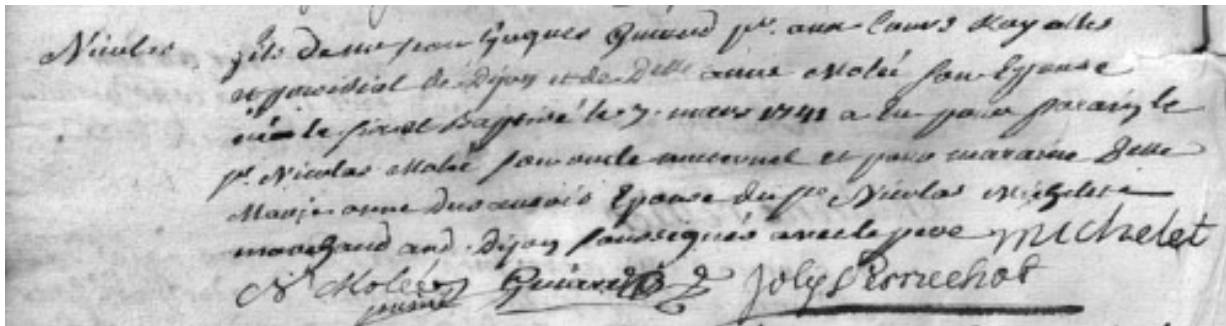 Nicolas fils de me jean Jacques Guiard pr. aux Cours Royalles
et presidial de Dijon et de Dlle anne Molée son Epouse
né le et Baptisé le 7. mars 1741 a eu pour parain le
sr. Nicolas Molée son oncle maternel et pour maraine Delle
Marie anne Epouse du sr Nicolas Michelet
marchand aud. Dijon soussignés avec le pere Michelet
Nas Molée Guiard Joly Perruchot